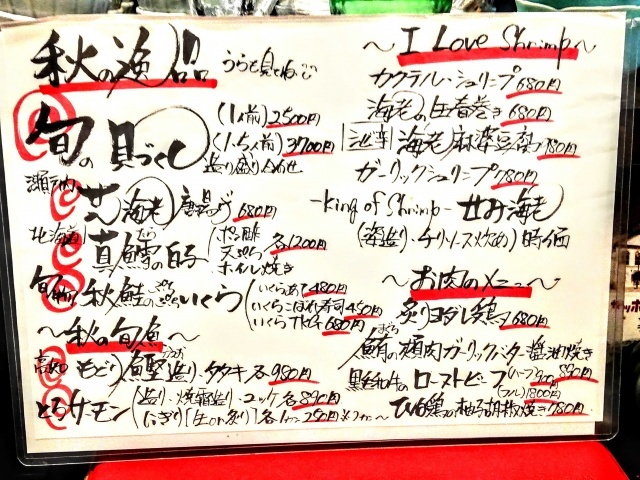 秋の漁品 うらも見てね
旬の貝づくし (1人前) 2500円
(1.5人前) 3700円
造り盛り合わせ
瀬戸内 芝海老 唐揚げ 680円
北海道 真鱈の白子 ポン酢
天ぷら 各1200円
ホイル焼き
旬 秋鮭のぷちぷちいくら (いくらあて 480円
いくらこぼれ寿司 450円
いくらTKG 680円
〜秋の旬魚〜
高知 もどり鰹 造り・タタキ 各980円
とろサーモン (造り・焼霜造り・ユッケ 各890円
にぎり[生or炙り] 各1カン250円
〜I Love Shrimp〜
カクテルシュリンプ 680円
海老の生春巻き 680円
海老麻婆豆腐 780円
ガーリックシュリンプ 780円
-king of Shrimp- 甘み海老
(造り・チリソース炒め) 時価
〜お肉のメニュー〜
炙りヨダレ鶏 680円
鮪の頬肉ガーリックバター醤油焼き
890円
黒毛和牛のローストビーフ (ハーフ) 900円
(フル) 1800円
ひな鶏の柚子胡椒焼き 780円